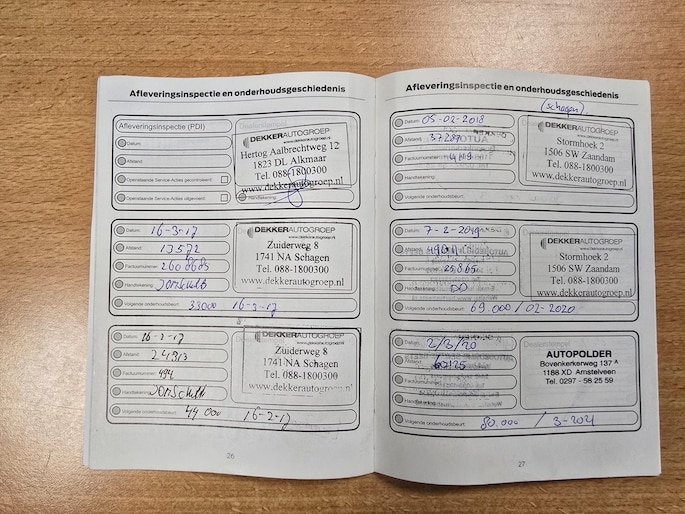 Afleveringsinspectie en onderhoudsgeschiedenis
Afleveringsinspectie (PDI)
Datum:
Afstand:
Openstaande Service Acties gecontroleerd:
Openstaande Service Acties uitgevoerd:
DEKKERAUTOGROEP
www.dekkerautogroep.nl
Hertog Aalbrechtweg 12
1823 DL Alkmaar
Tel. 088-1800300
www.dekkerautogroep.nl
Handtekening:
Datum: 16-3-17
Afstand: 13572
Factuurnummer: 2608685
Handtekening:
Volgende onderhoudsbeurt: 33000 16-3-17
DEKKERAUTOGROEP
www.dekkerautogroep.nl
Zuiderweg 8
1741 NA Schagen
Tel. 088-1800300
www.dekkerautogroep.nl
Datum: 16-2-17
Afstand: 24913
Factuurnummer: 494
Handtekening:
Volgende onderhoudsbeurt: 44 000 16-2-17
DEKKERAUTOGROEP
www.dekkerautogroep.nl
Zuiderweg 8
1741 NA Schagen
Tel. 088-1800300
www.dekkerautogroep.nl
26
Afleveringsinspectie en onderhoudsgeschiedenis
(schagen)
Datum: 05-02-2018
Afstand: 37290
Factuurnummer: 4419
Handtekening:
Volgende onderhoudsbeurt:
DEKKERAUTOGROEP
www.dekkerautogroep.nl
Stormhoek 2
1506 SW Zaandam
Tel. 088-1800300
www.dekkerautogroep.nl
Datum: 7-2-2019
Afstand: 49611
Factuurnummer: 25865
Handtekening:
Volgende onderhoudsbeurt: 69.000 / 02-2020
DEKKERAUTOGROEP
www.dekkerautogroep.nl
Stormhoek 2
1506 SW Zaandam
Tel. 088-1800300
www.dekkerautogroep.nl
Datum: 2/3/20
Afstand: 62125
Factuurnummer:
Handtekening:
Volgende onderhoudsbeurt: 80.000 / 3-2021
AUTOPOLDER
Bovenkerkerweg 137 A
1188 XD Amstelveen
Tel. 0297 - 58 25 59
27